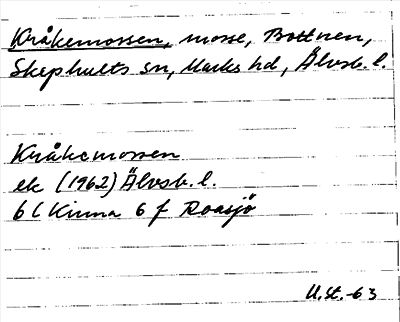 Kråkemossen, mosse, Bottnen,
Skephults sn, Marks hd, Älvsb. l.
Kråkemossen
ek (1962) Älvsb. l.
6 C Kinna 6 f Roasjö
U. St. -63